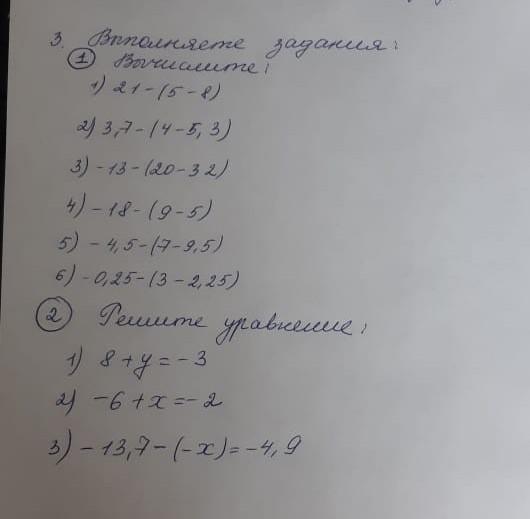 3. Выполняете задания:
① Вычислите:
1) 21-(5-8)
2) 3,7-(4-5,3)
3) -13-(20-32)
4) -18-(9-5)
5) -4,5-(7-9,5)
6) -0,25-(3-2,25)
② Решите уравнение:
1) 8+y=-3
2) -6+x=-2
3) -13,7-(-x)=-4,9